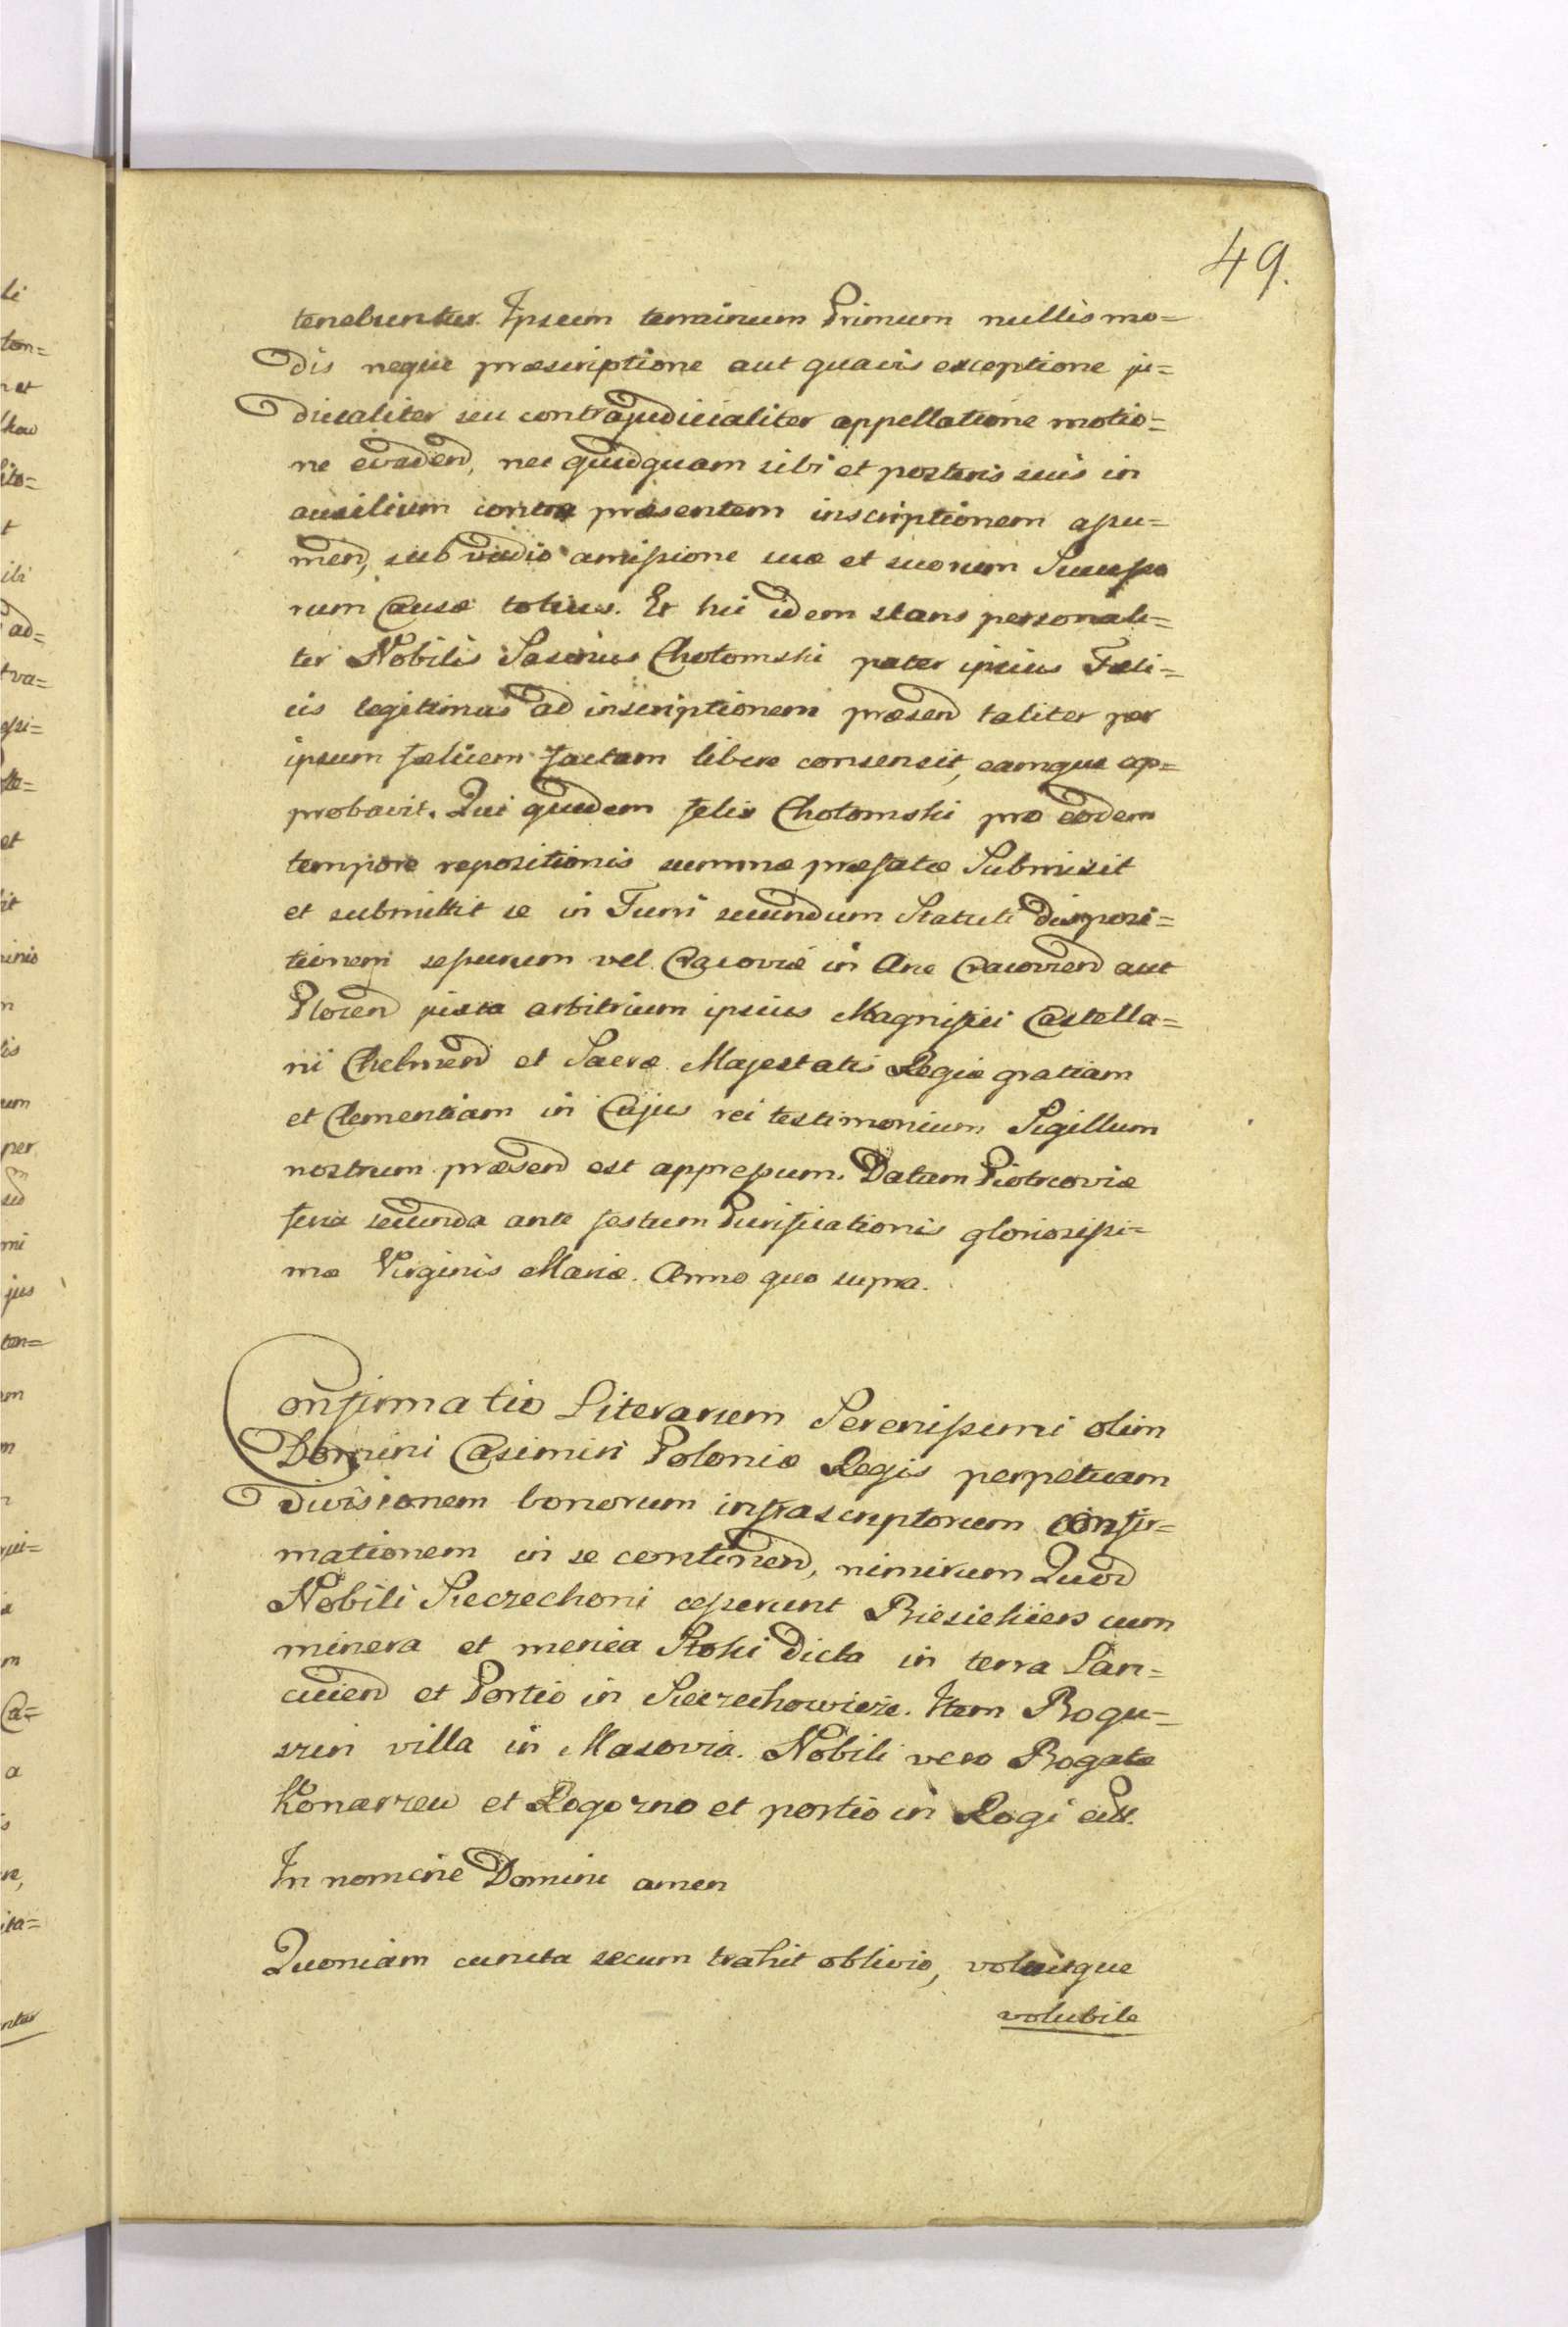 49.
tenebuntur. Ipsum terminum Primum nullis mo=
dis neque præscriptione aut quavis exceptione ju=
dicialiter seu contrajudicialiter appellatione motio=
ne evadend, nec quidquam sibi et posteris suis in
auxilium contra præsentem inscriptionem assu=
mend, sub amissione suæ et suorum Successo
rum Causæ totius. Et hic idem stans personali=
ter Nobilis Sasinus Chotomski pater ipsius Fæli=
cis legitimus ad inscriptionem præsend taliter per
ipsum fælicem factam libere consensit, eamque ap=
probavit. Qui quidem felix Chotomski pro eodem
tempore repositionis summæ præfatæ Submisit
et submittit se in Turri secundum Statuti disposi=
tionem sessurum vel Cracoviæ in Arce Cracoviend aut
Plocend juxta arbitrium ipsius Magnifici Castella=
ni Chelmend et Sacræ Majestatis Regiæ gratiam
et Clementiam in Cujus rei testimonium Sigillum
nostrum præsend est appressum. Datum Piotrcoviæ
feria secunda ante festum Purificationis gloriosissi=
mæ Virginis Mariæ. Anno quo supra.
Confirmatio Literarum Serenissimi olim
Domini Casimiri Poloniæ Regis perpetuam
divisionem bonorum infrascriptorum confir=
mationem in se continend, nimirum Quod
Nobili Sieczechoni cesserunt Biesiekiers cum
minera et merica Stoki dicta in terra Lan=
ciciend et Portio in Sieczechowicze. Item Bogu=
szin villa in Masovia. Nobili vero Bogate
Konarzew et Rogozno et portio in Rogi
In nomine Domini amen
Quoniam cuncta secum trahit oblivio, volvitque
volubile